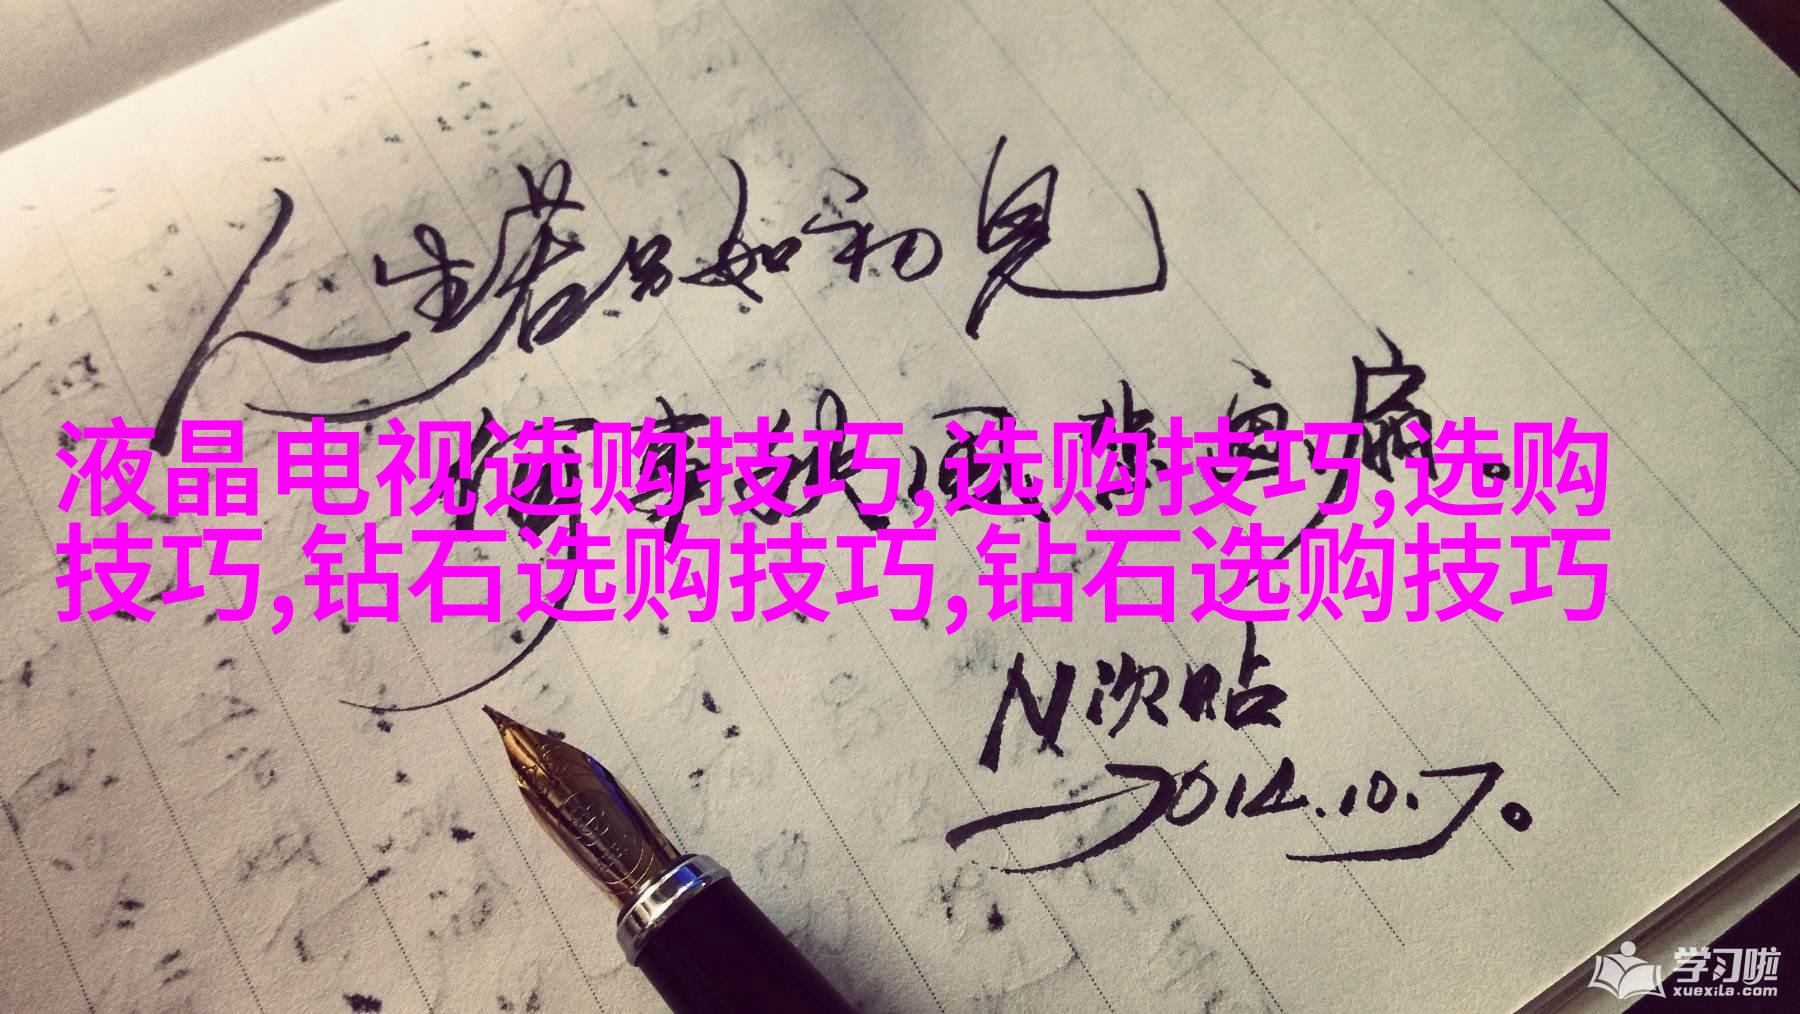 人生若只如初见
何事秋风悲画扇。
液晶电视选购技巧,选购技巧,选购
技巧,钻石选购技巧,钻石选购技巧
N次贴
2014.10.7。
学习啦
xuexila.com